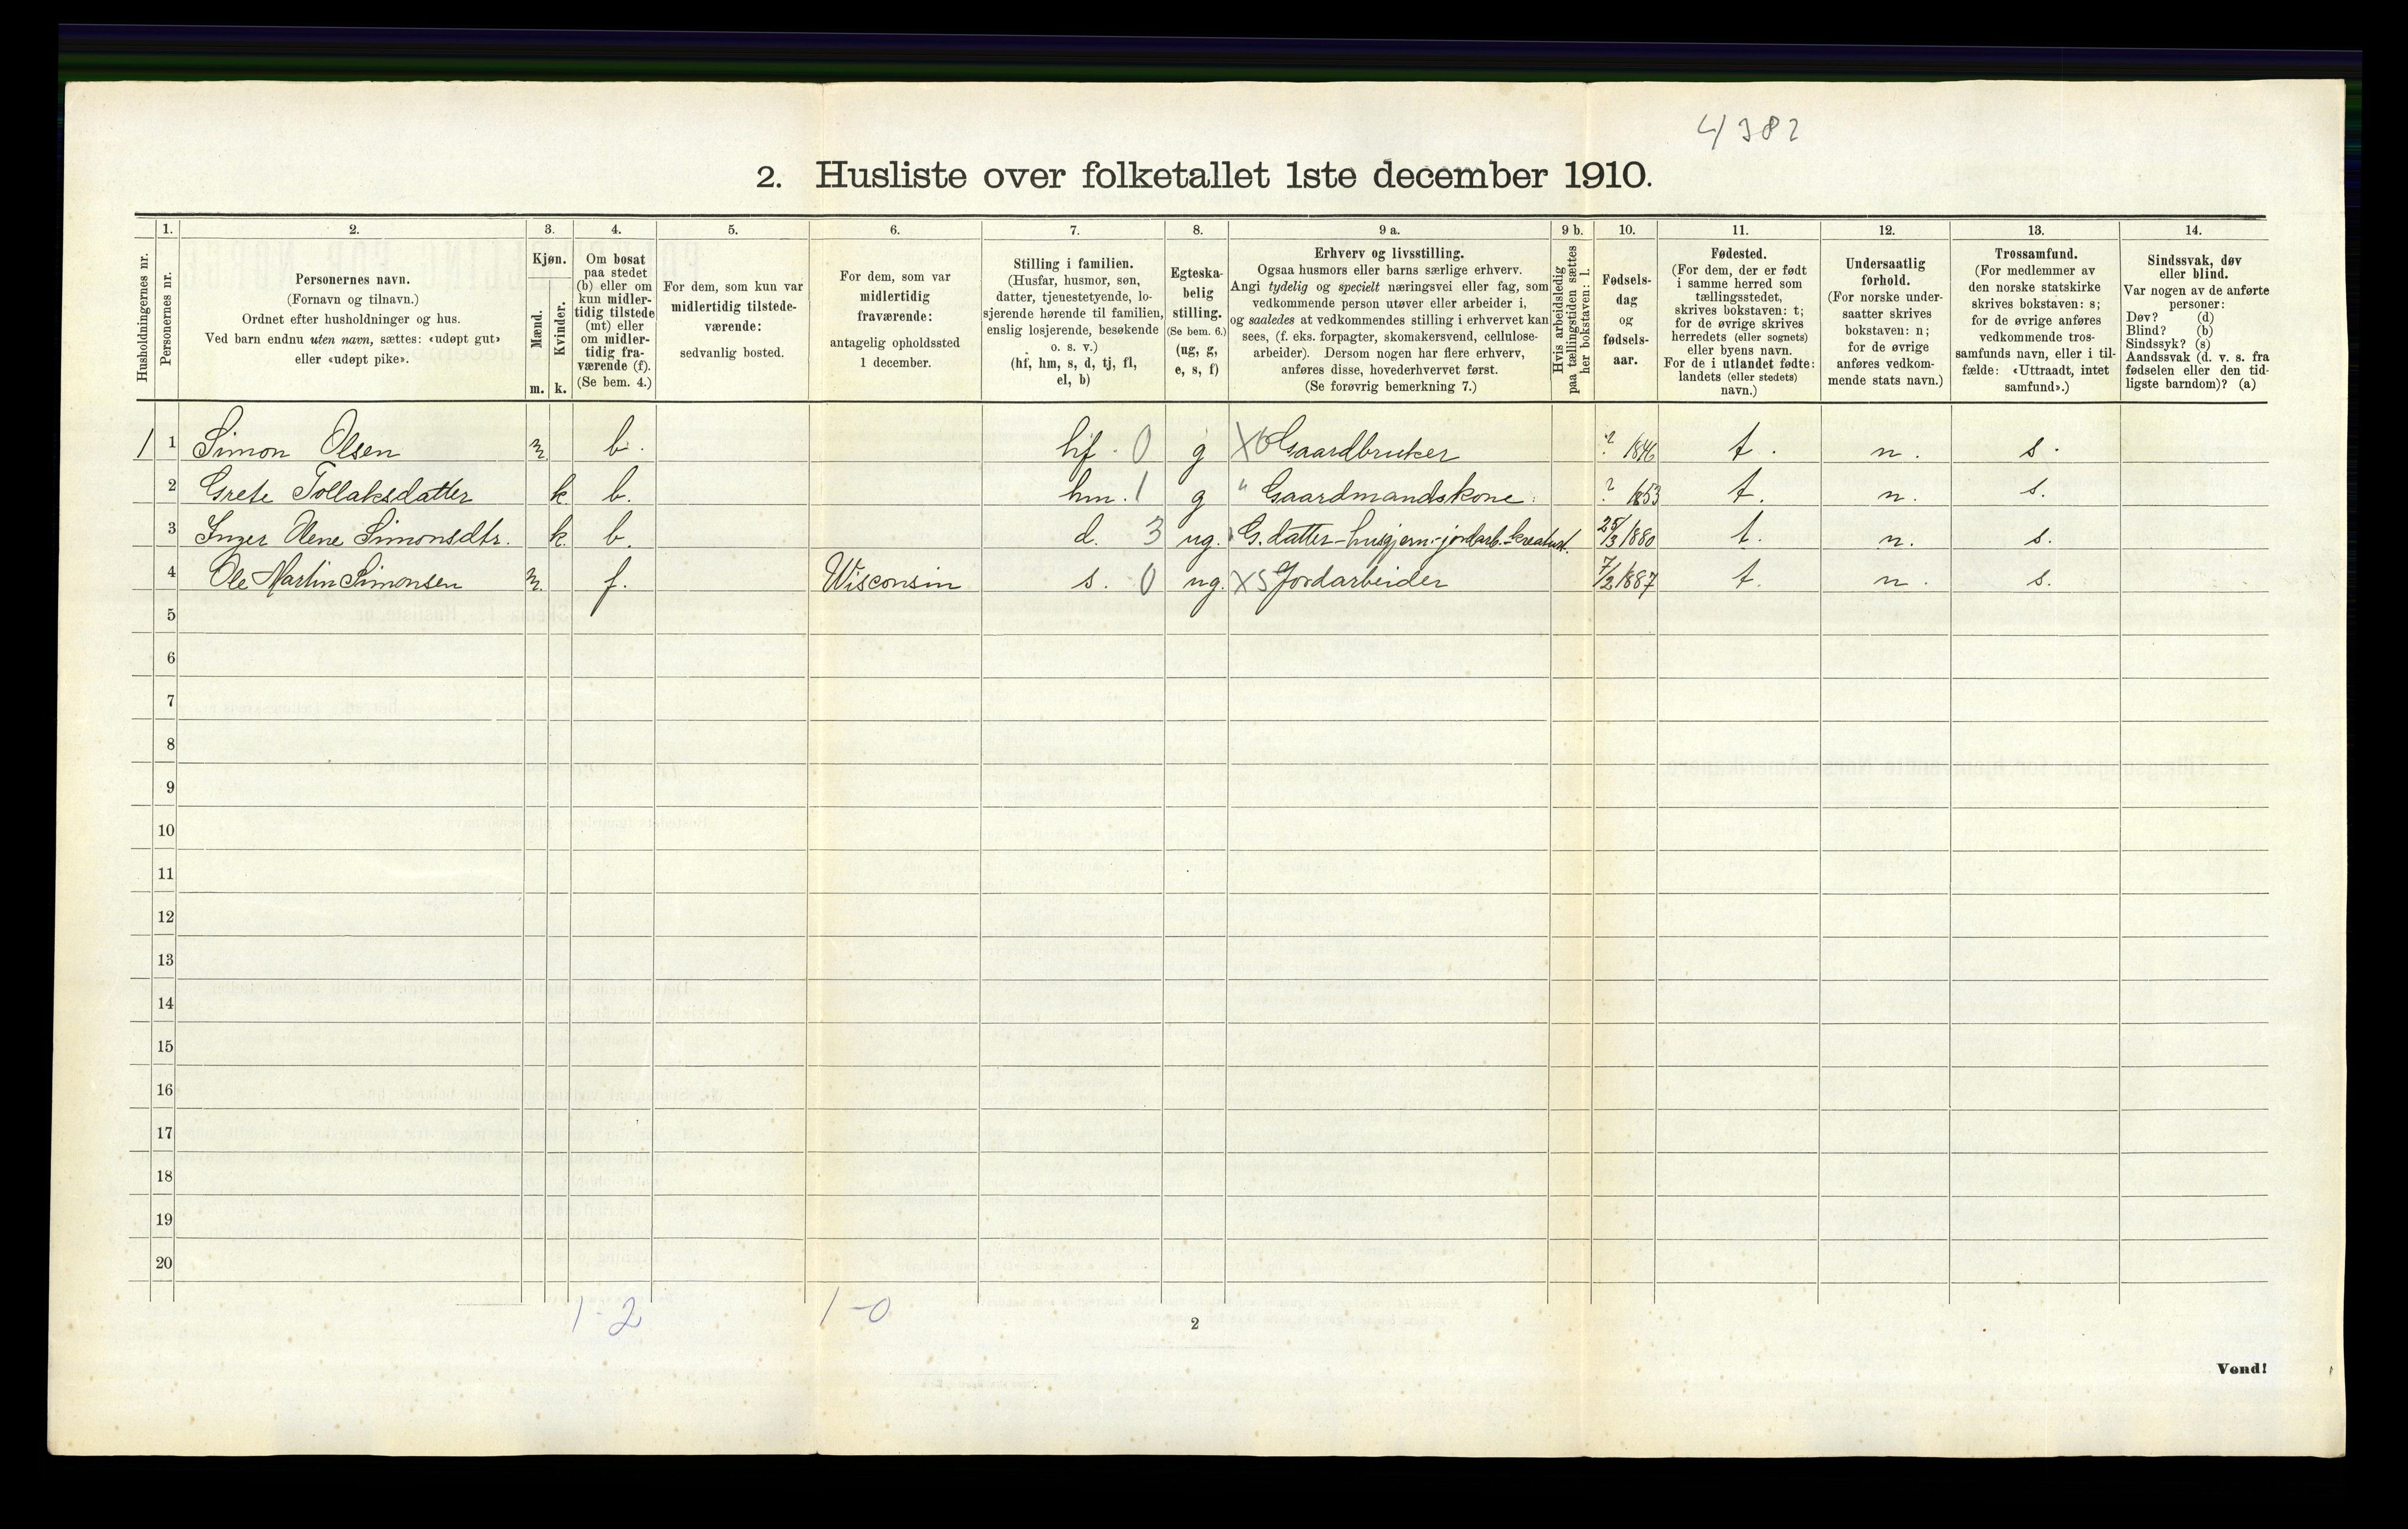 4/382
2. Husliste over folketallet 1ste december 1910.
Husholdningernes nr.
1.
Personernes nr.
2.
Personernes navn.
(Fornavn og tilnavn.)
Ordnet efter husholdninger og hus.
Ved barn endnu uten navn, sættes: «udøpt gut»
eller «udøpt pike».
3.
Kjøn.
Mænd.
Kvinder.
m. k.
4.
Om bosat
paa stedet
(b) eller om
kun midler-
tidig tilstede
(mt) eller
om midler-
tidig fra-
værende (f).
(Se bem. 4.)
5.
For dem, som kun var
midlertidig tilstede-
værende:
sedvanlig bosted.
6.
For dem, som var
midlertidig
fraværende:
antagelig opholdssted
1 december.
7.
Stilling i familien.
(Husfar, husmor, søn,
datter, tjenestetyende, lo-
sjerende hørende til familien,
enslig losjerende, besøkende
o. s. v.)
(hf, hm, s, d, tj, fl,
el, b)
8.
Egteska-
belig
stilling.
(Se bem. 6.)
(ug, g,
e, s, f)
9 a.
Erhverv og livsstilling.
Ogsaa husmors eller barns særlige erhverv.
Angi tydelig og specielt næringsvei eller fag, som
vedkommende person utøver eller arbeider i,
og saaledes at vedkommendes stilling i erhvervet kan
sees, (f. eks. forpagter, skomakersvend, cellulose-
arbeider). Dersom nogen har flere erhverv,
anføres disse, hovederhvervet først.
(Se forøvrig bemerkning 7.)
9 b.
Hvis arbeidsledig
paa tællingstiden sættes
her bokstaven: l.
10.
Fødsels-
dag
og
fødsels-
aar.
11.
Fødested.
(For dem, der er født
i samme herred som
tællingsstedet,
skrives bokstaven: t;
for de øvrige skrives
herredets (eller sognets)
eller byens navn.
For de i utlandet fødte:
landets (eller stedets)
navn.)
12.
Undersaatlig
forhold.
(For norske under-
saatter skrives
bokstaven: n;
for de øvrige
anføres vedkom-
mende stats navn.)
13.
Trossamfund.
(For medlemmer av
den norske statskirke
skrives bokstaven: s;
for de øvrige anføres
vedkommende tros-
samfunds navn, eller i til-
fælde: «Uttraadt, intet
samfund».)
14.
Sindssvak, døv
eller blind.
Var nogen av de anførte
personer:
Døv? (d)
Blind? (b)
Sindssyk? (s)
Aandssvak (d. v. s. fra
fødselen eller den tid-
ligste barndom)? (a)
1 1 Simon Olsen m b. hf. 0 g X6 Gaardbruker ? 1846 t. n. s.
2 Grete Tollaksdatter k b. hm. 1 g " Gaardmandskone. ? 1853 t. n. s.
3 Inger Olene Simonsdtr. k. b. d. 3 ug. G. datter-husgjern.-jordarb.-kreaturst. 25/3 1880 t. n. s.
4 Ole Martin Simonsen m. f. Wisconsin s. 0 ug. XS Jordarbeider 7/2 1887 t. n. s.
5
6
7
8
9
10
11
12
13
14
15
16
17
18
19
20
1-2 1-0
2
Vend!